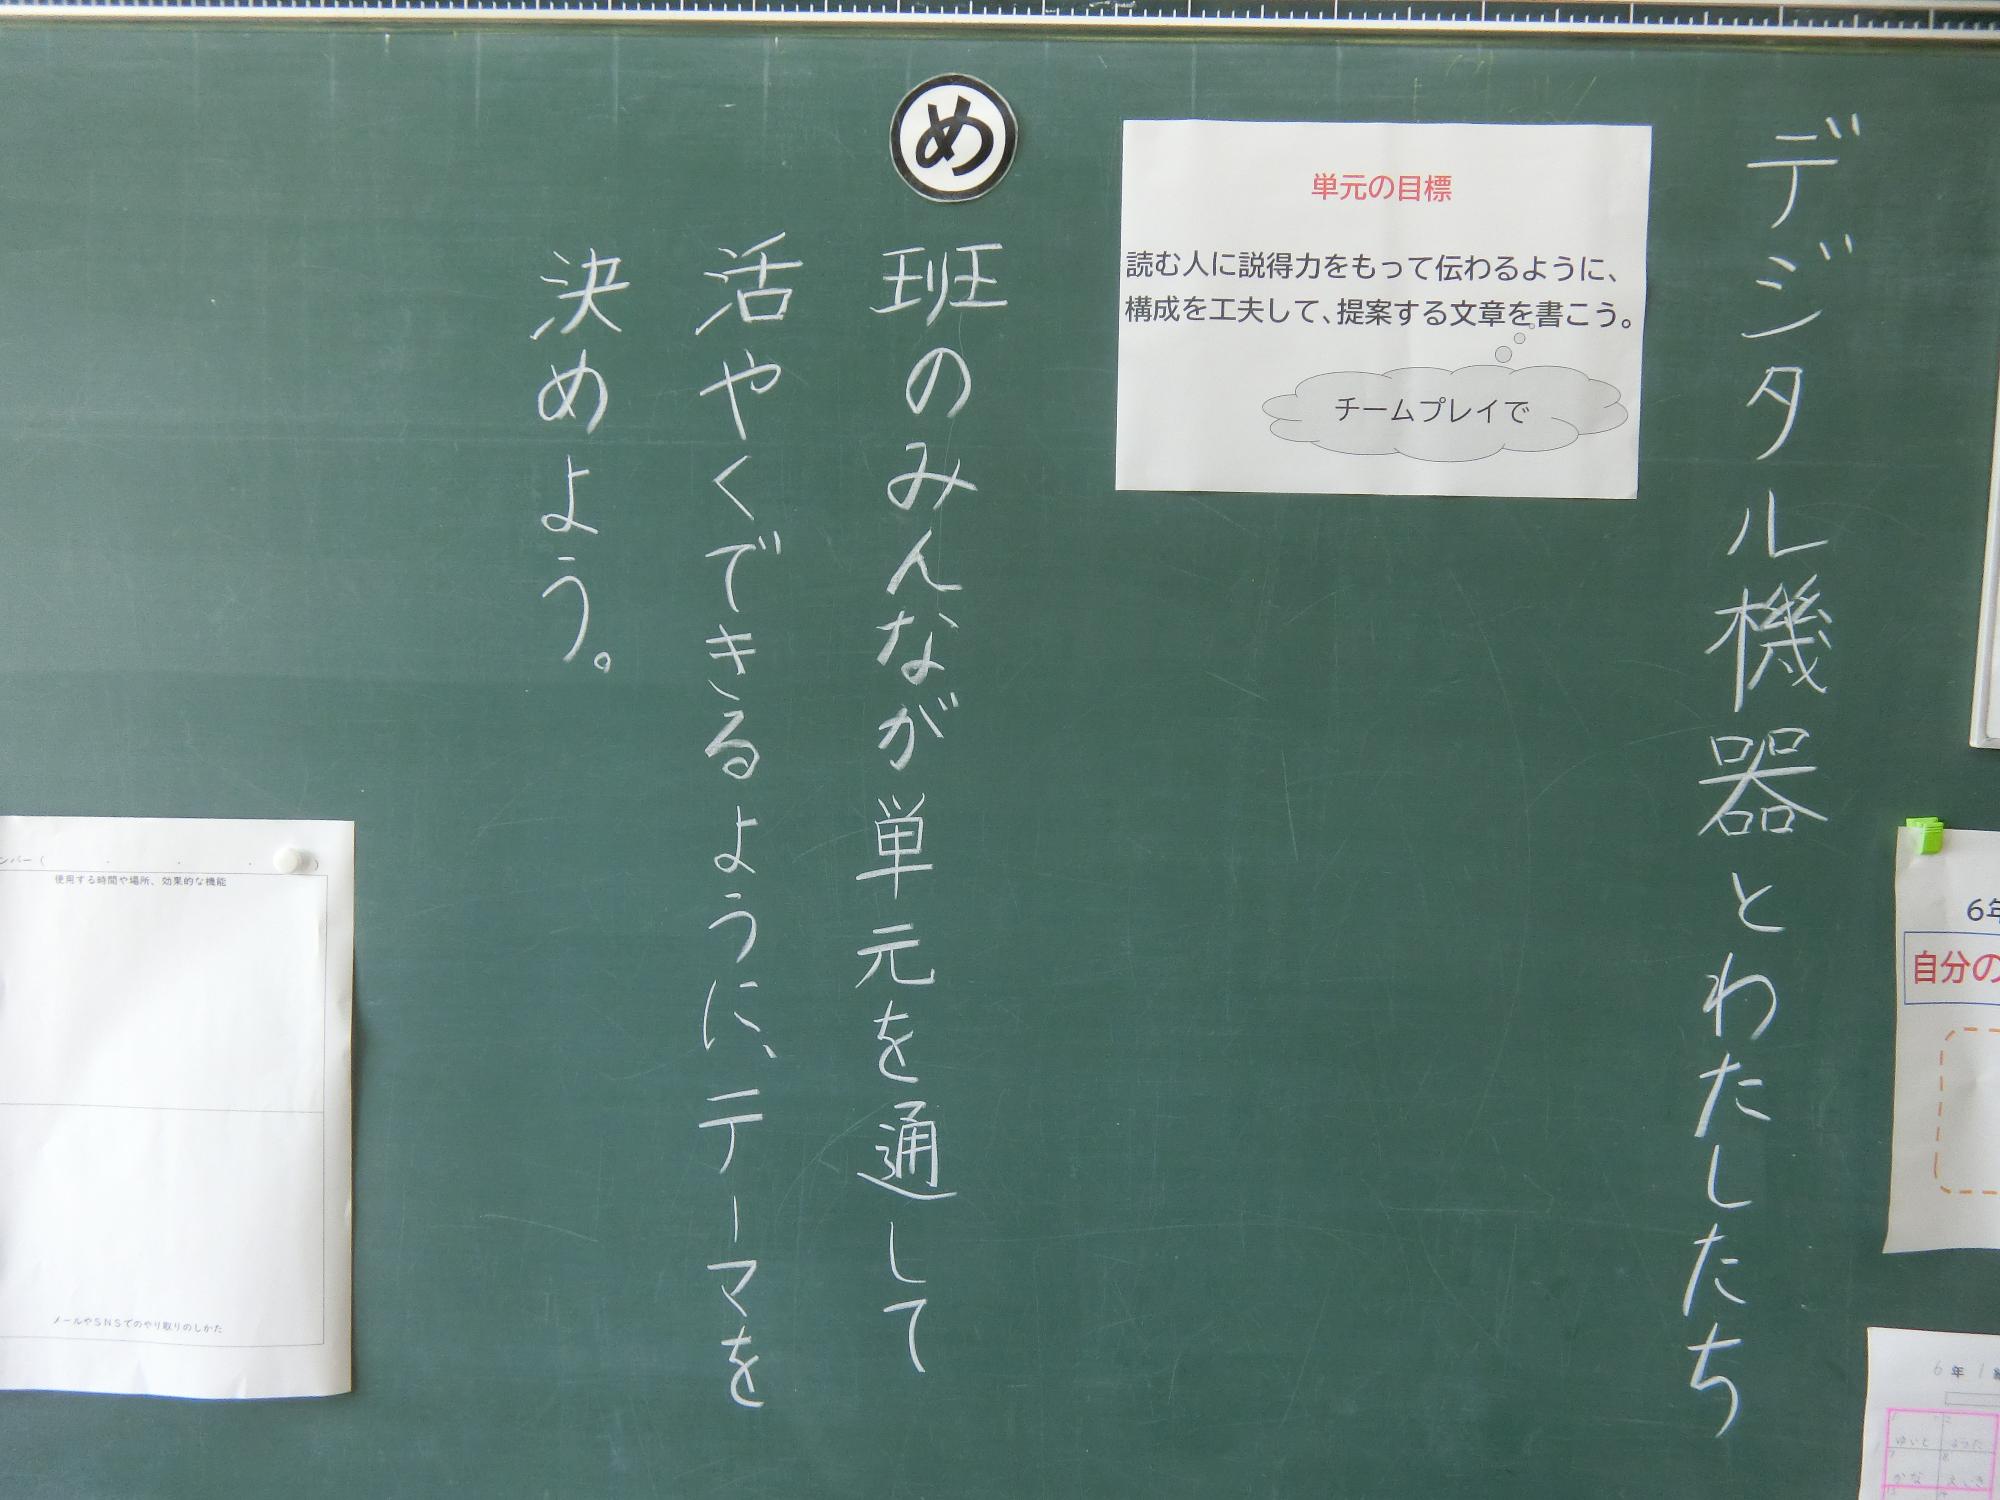 デジタル機器とわたしたち
単元の目標
読む人に説得力をもって伝わるように、
構成を工夫して、提案する文章を書こう。
チームプレイで
め
班のみんなが単元を通して
活やくできるように、テーマを
決めよう。
6年
自分の
6年1組
ゆいと
かな
ンバー（　・　・　・　）
使用する時間や場所、効果的な機能
メールやSNSでのやり取りのしかた